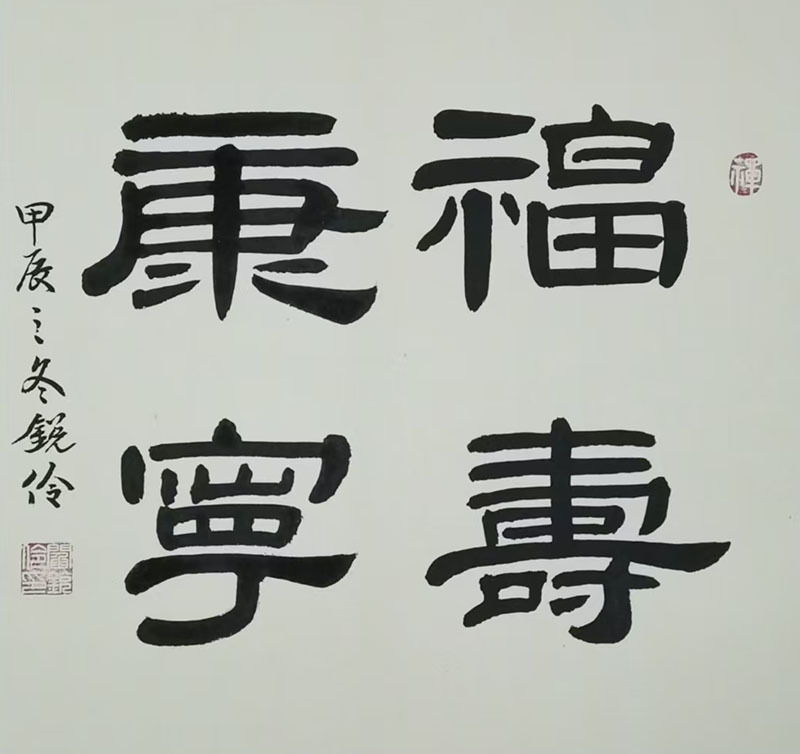 福壽
康寧
甲辰之冬銳伶